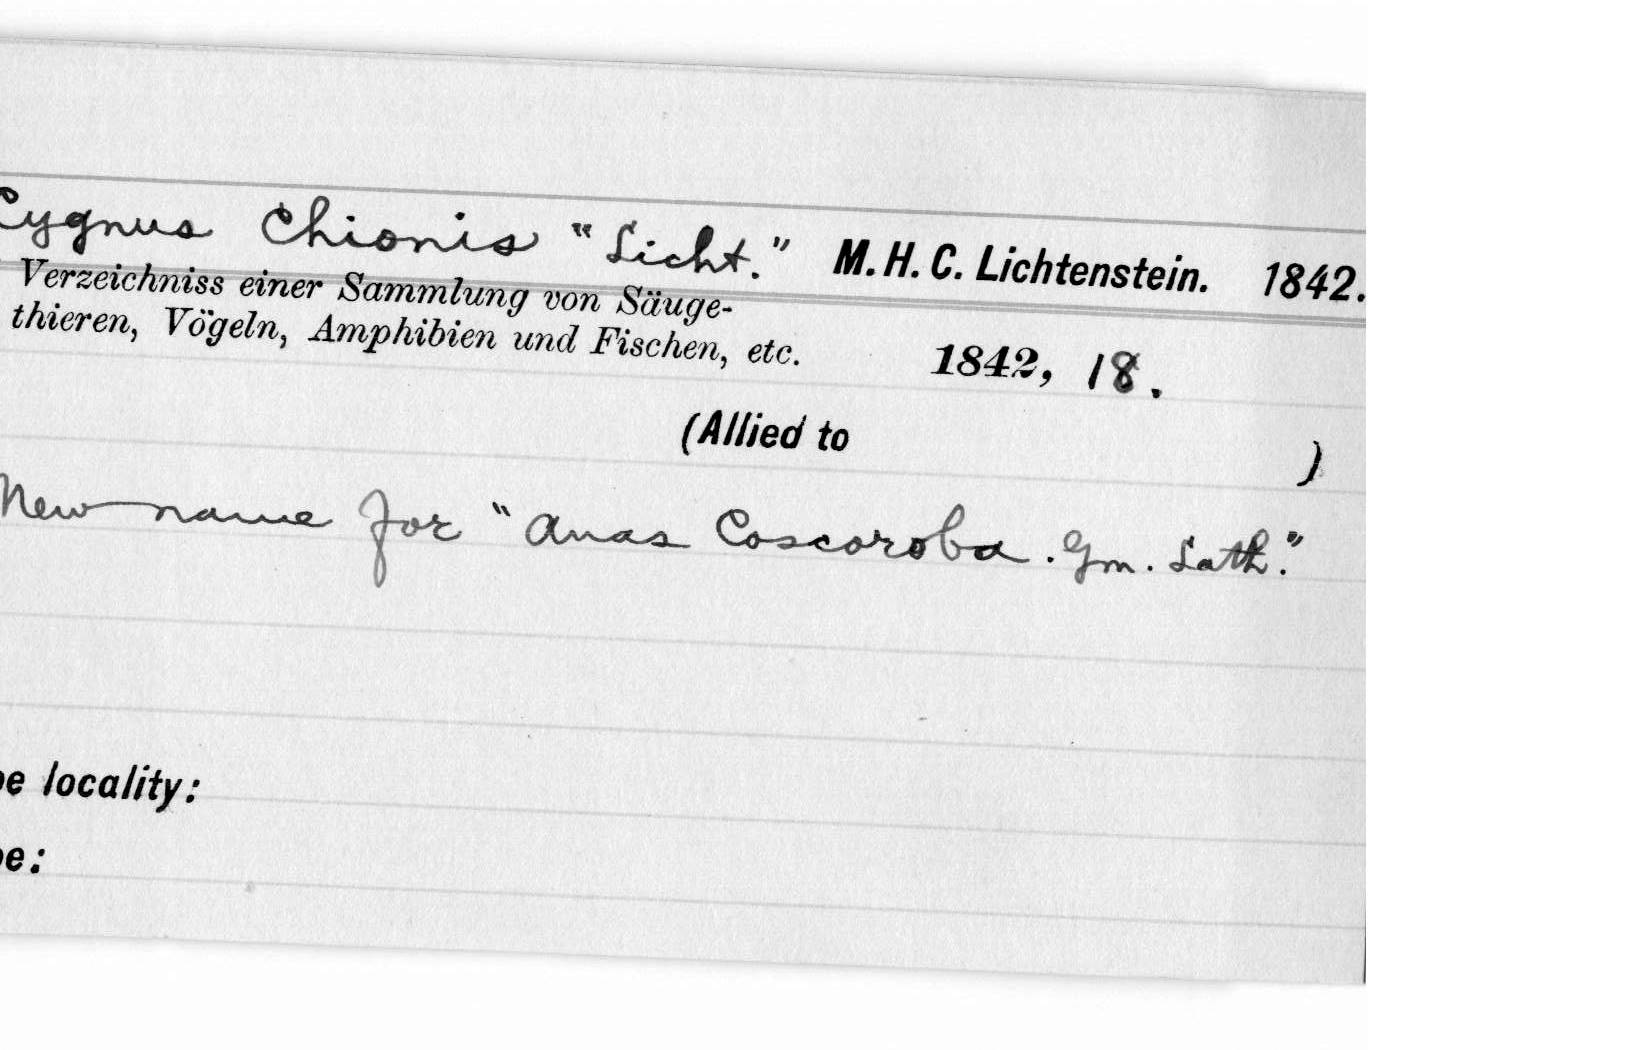 Cygnus Chionis "Licht." M. H. C. Lichtenstein. 1842.
Verzeichniss einer Sammlung von Säuge-
thieren, Vögeln, Amphibien und Fischen, etc. 1842, 18.
(Allied to )
New name for "Anas Coscoroba. Gm. Lath."
pe locality:
pe: